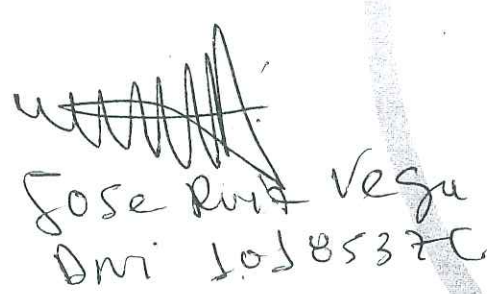 Jose Ruiz Vega
Dni 10185372C